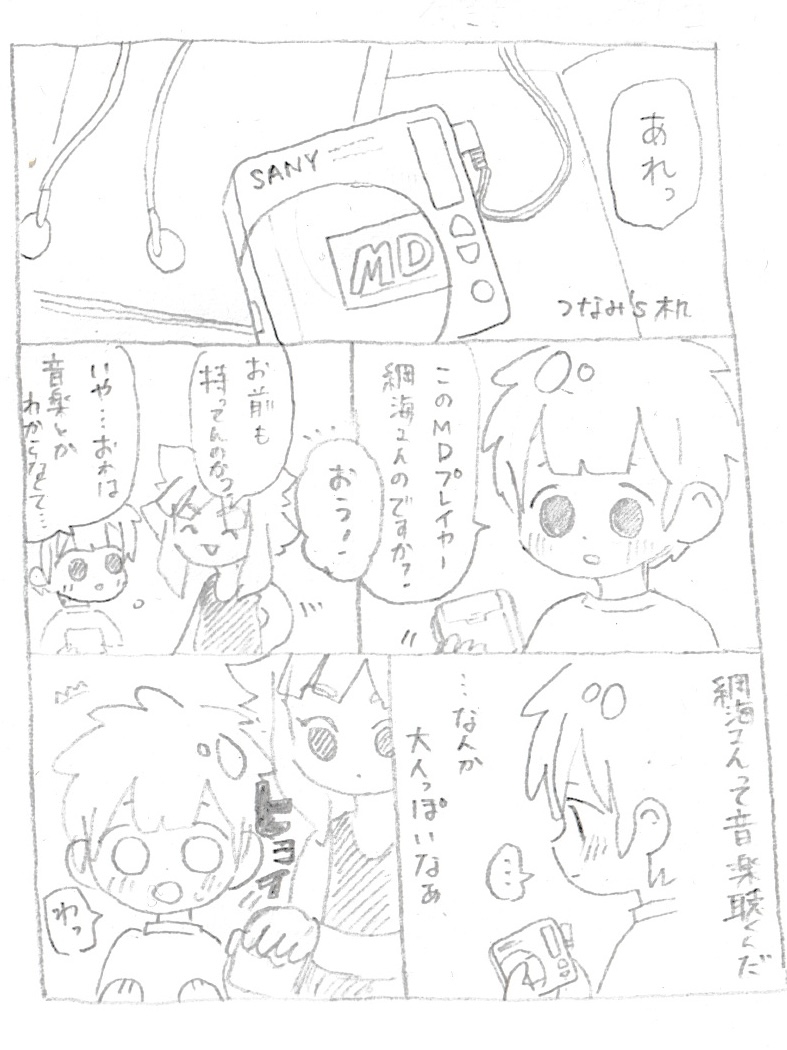 あれっ
SANY
MD
つなみ's 机
このMDプレイヤー
綱海さんのですか?
おうっ!
お前も
持ってんのかっ?
いや…おれは
音楽とか
わからなくて…
綱海さんって音楽聴くんだ
…なんか
大人っぽいなあ
…
ヒョイ
わっ